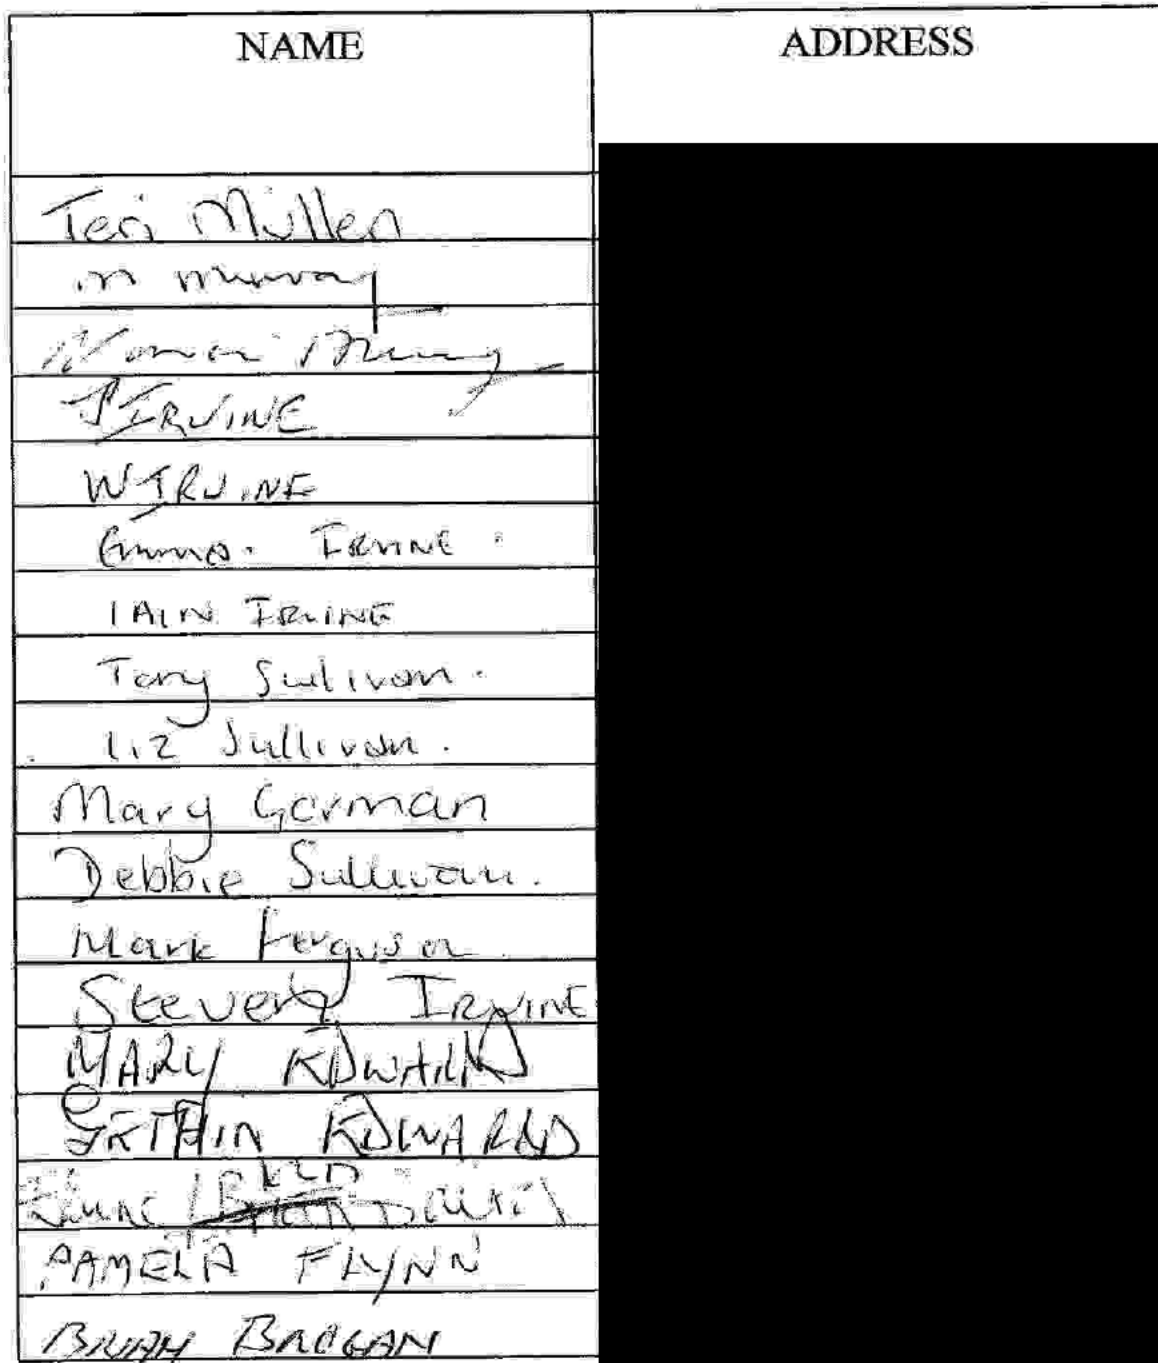 NAME ADDRESS
Teri Mullen
M Murray
J IRVINE
W IRVINE
Emma. IRVINE
IAIN IRVINE
Tony Sullivan.
Liz Sullivan.
Mary Gorman
Debbie Sullivan.
Mark Ferguson
Steven IRVINE
MARY EDWARDS
GETHIN EDWARDS
PAMELA FLYNN
BRIAN BROGAN